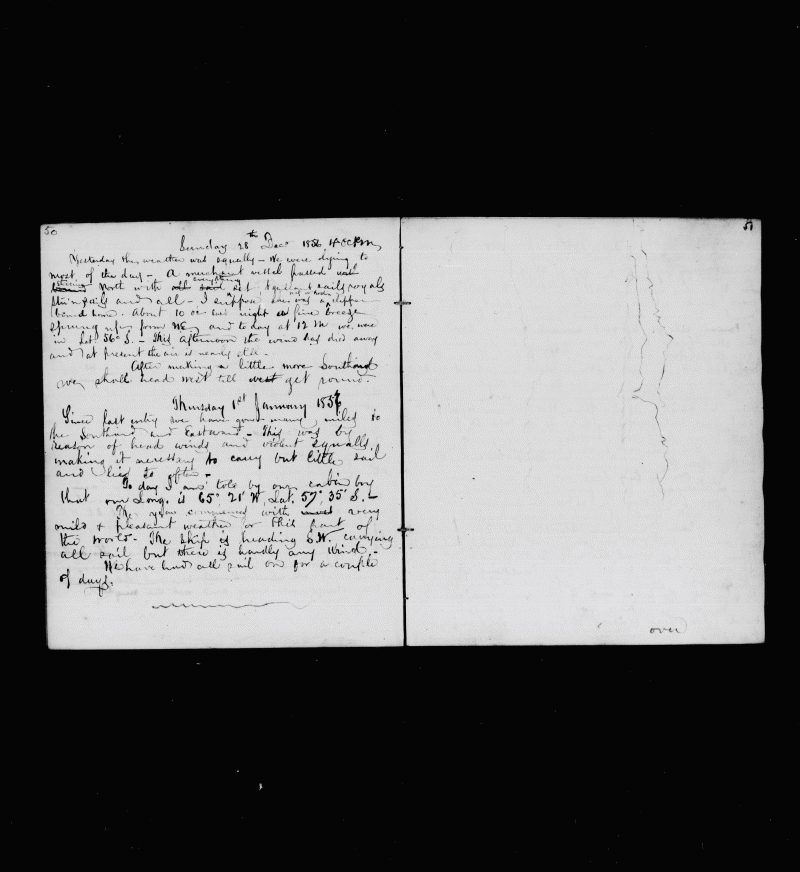 50
Sunday 28th Dec 1856, 4 oclk Pm
Yesterday the weather was squally - We were lying to
most of the day - A merchant vessel passed
steering North with everything set, topgallant sails royals
stun'sails and all - I suppose she was a clipper
bound home. About 10 oc last night a fine breeze
sprung up from NE, and to day at 12 M we were
in Lat. 56° S. - This afternoon the wind has died away
and at present the air is nearly still.
After making a little more Southing
we shall head west till we get round.
Thursday 1st January 1856
Since last entry we have gone many miles to
the Southward and Eastward - This was by
reason of head winds and violent squalls
making it necessary to carry but little sail
and lie to often -
To day I am told by our cabin boy
that our Long. is 65° 21' W, Lat. 57° 35' S. -
The year commenced with very
mild & pleasant weather for this part of
the world - The ship is heading S.W. carrying
all sail but there is hardly any wind. -
We have had all sail on for a couple
of days.
51
over